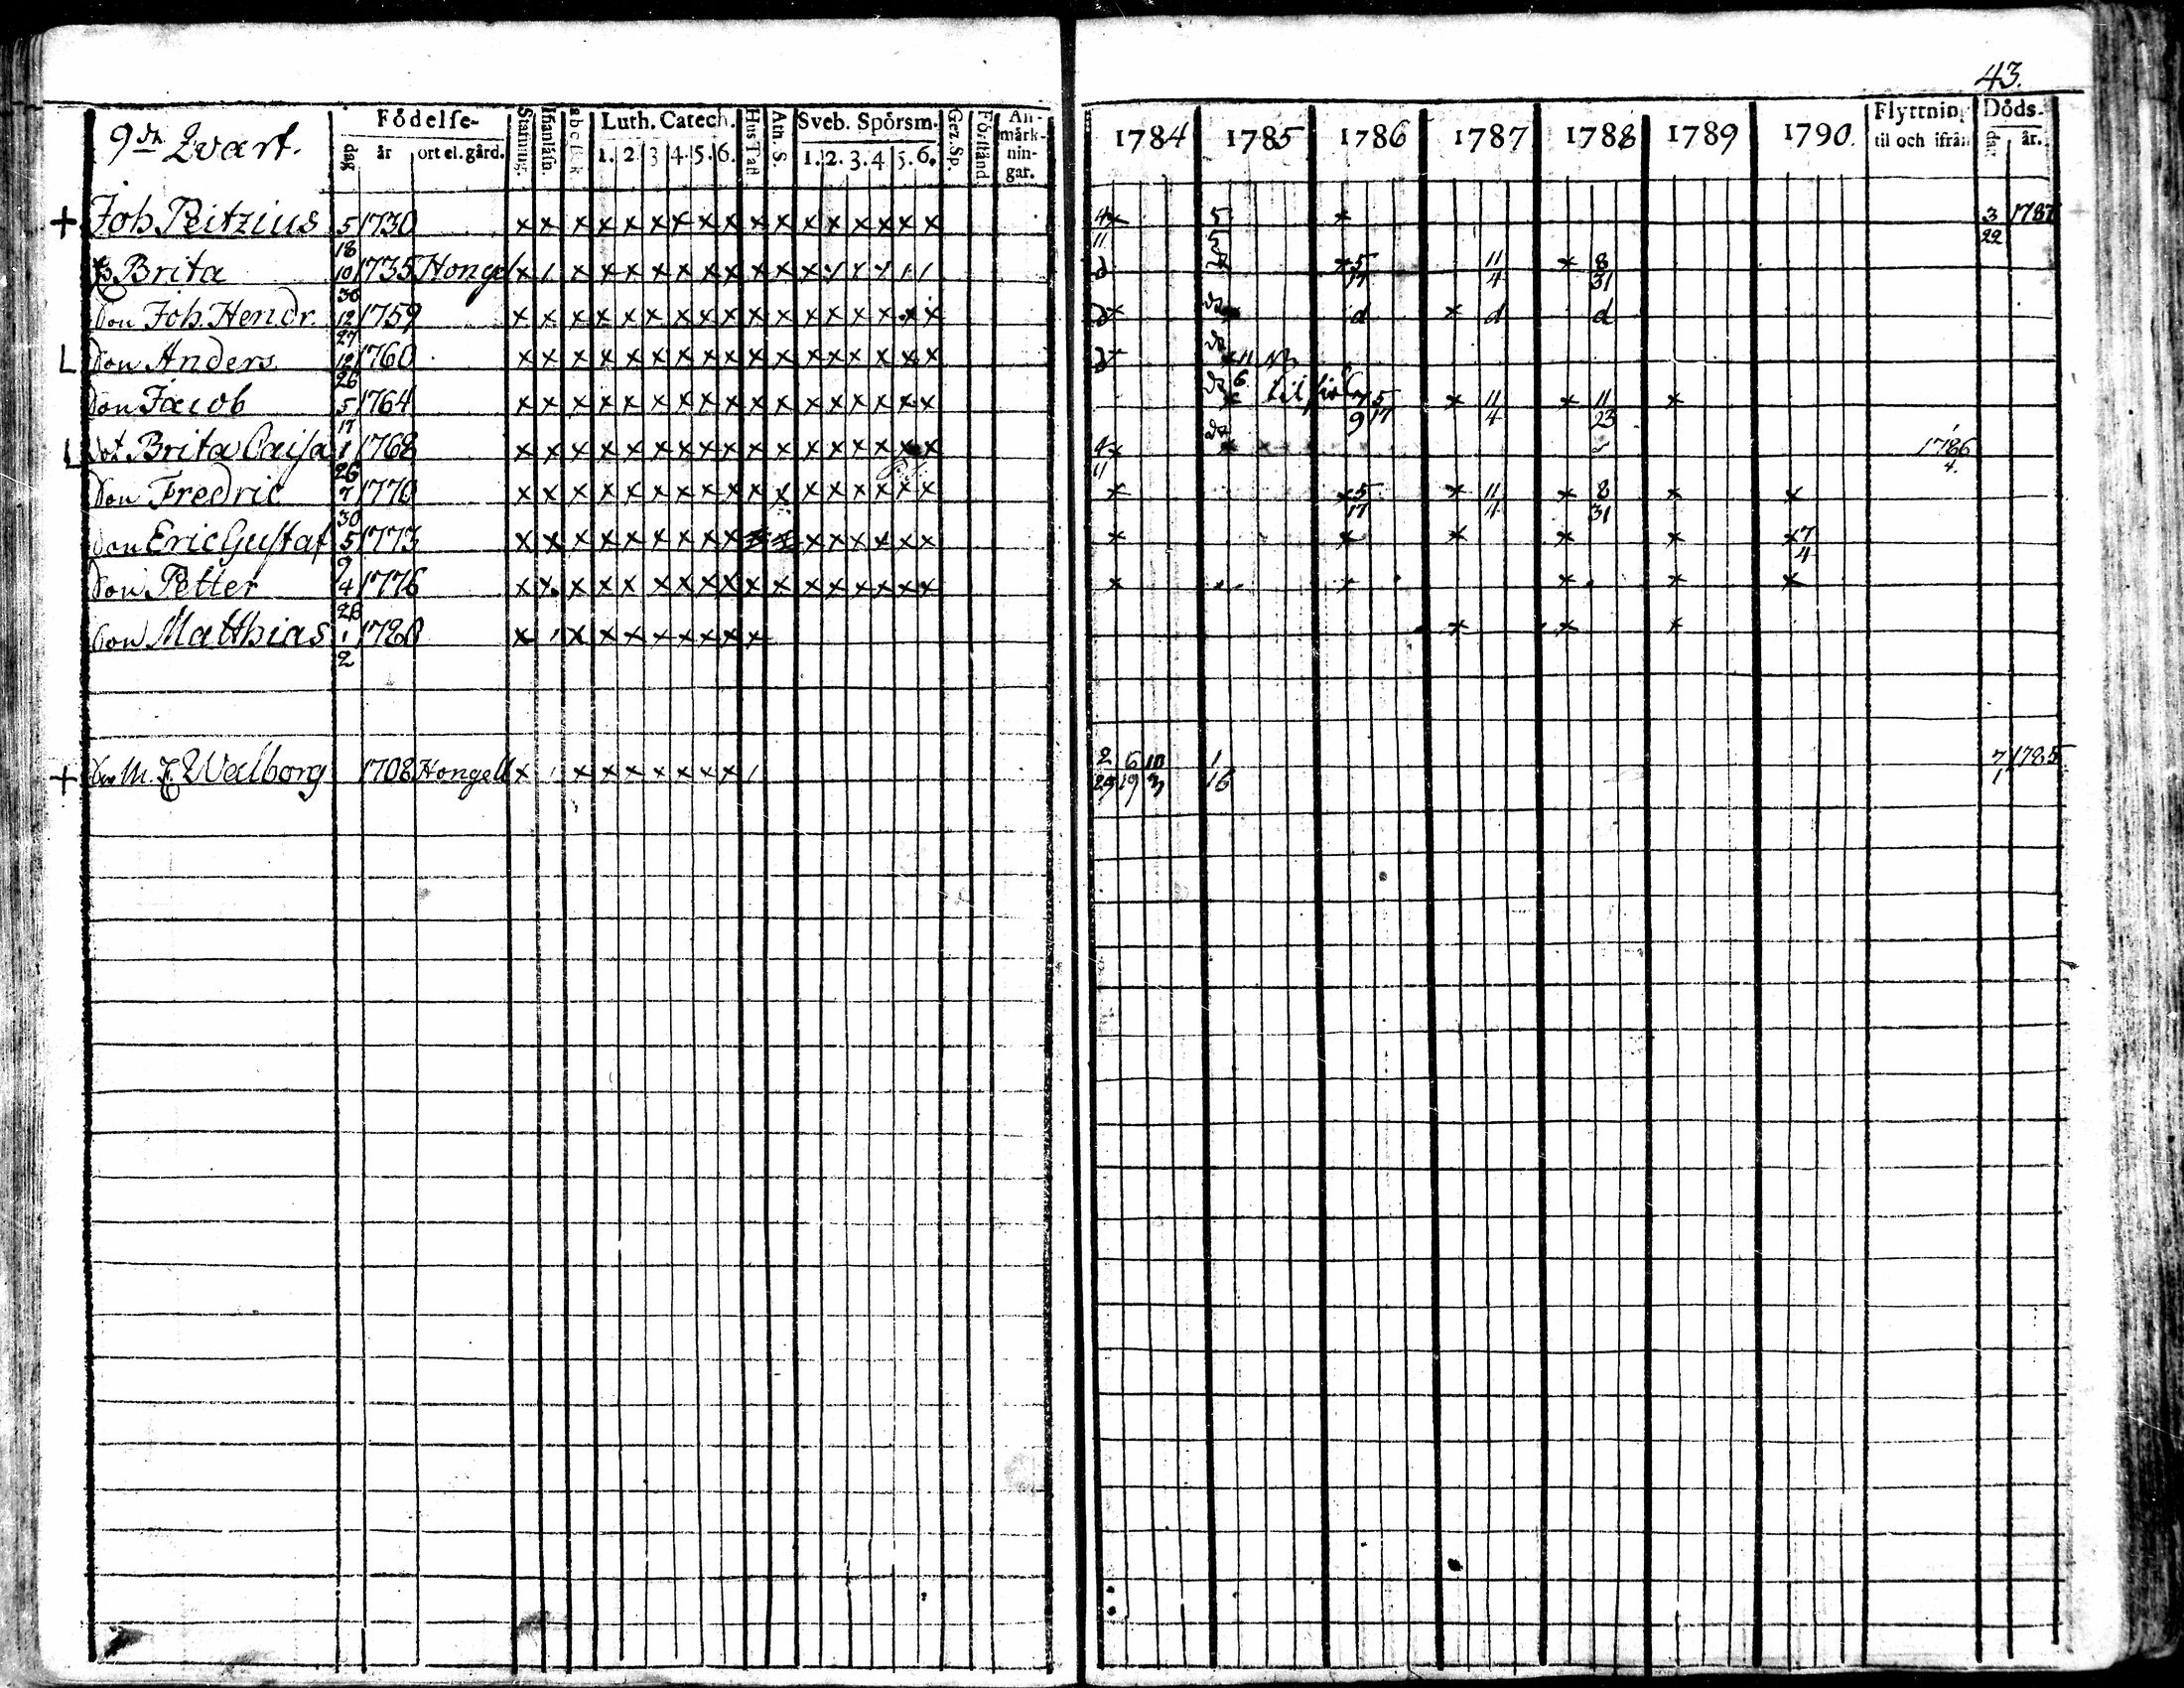 43.
9de Qvart.
Födelse-
dag år ort el. gård.
Stafning. Luth. Catech. Hus Tafl Ath. S. Sveb. Spörsm. Gez. Sp. Förstånd An-märk-nin-gar.
1. 2. 3 4. 5. 6. 1. 2. 3. 4 5. 6.
1784 1785 1786 1787 1788 1789 1790. Flyttning til och ifrån Döds- dag år.
+ Joh Peitzius 5 18 1730 × × × × × × × × × × × × × × × × × 4 11 × 5 × 3 22 1787
Brita 10 30 1735 Hongel d × 5 17 11 4 × 8 31
Son Joh. Hendr. 12 27 1759 × × × × × × × × × × × × × × × × × d × d × d d
L Son Anders 12 26 1760 × × × × × × × × × × × × × × × × × d
Son Jacob 5 17 1764 × × × × × × × × × × × × × × × × × 6 til × 11 4 × 11 23 ×
L Dot Brita Caisa 1 26 1768 × × × × × × × × × × × × × × × × × 4 11 × 1786 4.
Son Fredric 7 30 1770 × × × × × × × × × × × × × × × × × × × 5 17 × 11 4 × 8 31 × ×
Son Eric Gustaf 5 9 1773 × × × × × × × × × × × × × × × × × × × × × × × 7 4
Son Petter 4 28 1776 × × × × × × × × × × × × × × × × × × × × × ×
Son Matthias 1 2 1780 × 1 × × × × × × × × × × ×
+ M. Walborg 1708 Hongell × 1 × × × × × × × 1 2 29 6 19 10 3 1 16 7 1 1785